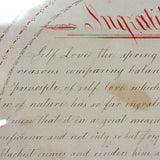 Ingrati
Self Love the spring
reasons comparing balan
principle of self love which
of nature has so far
that it in a great meas
and not only so but
blackest crimes and renders him